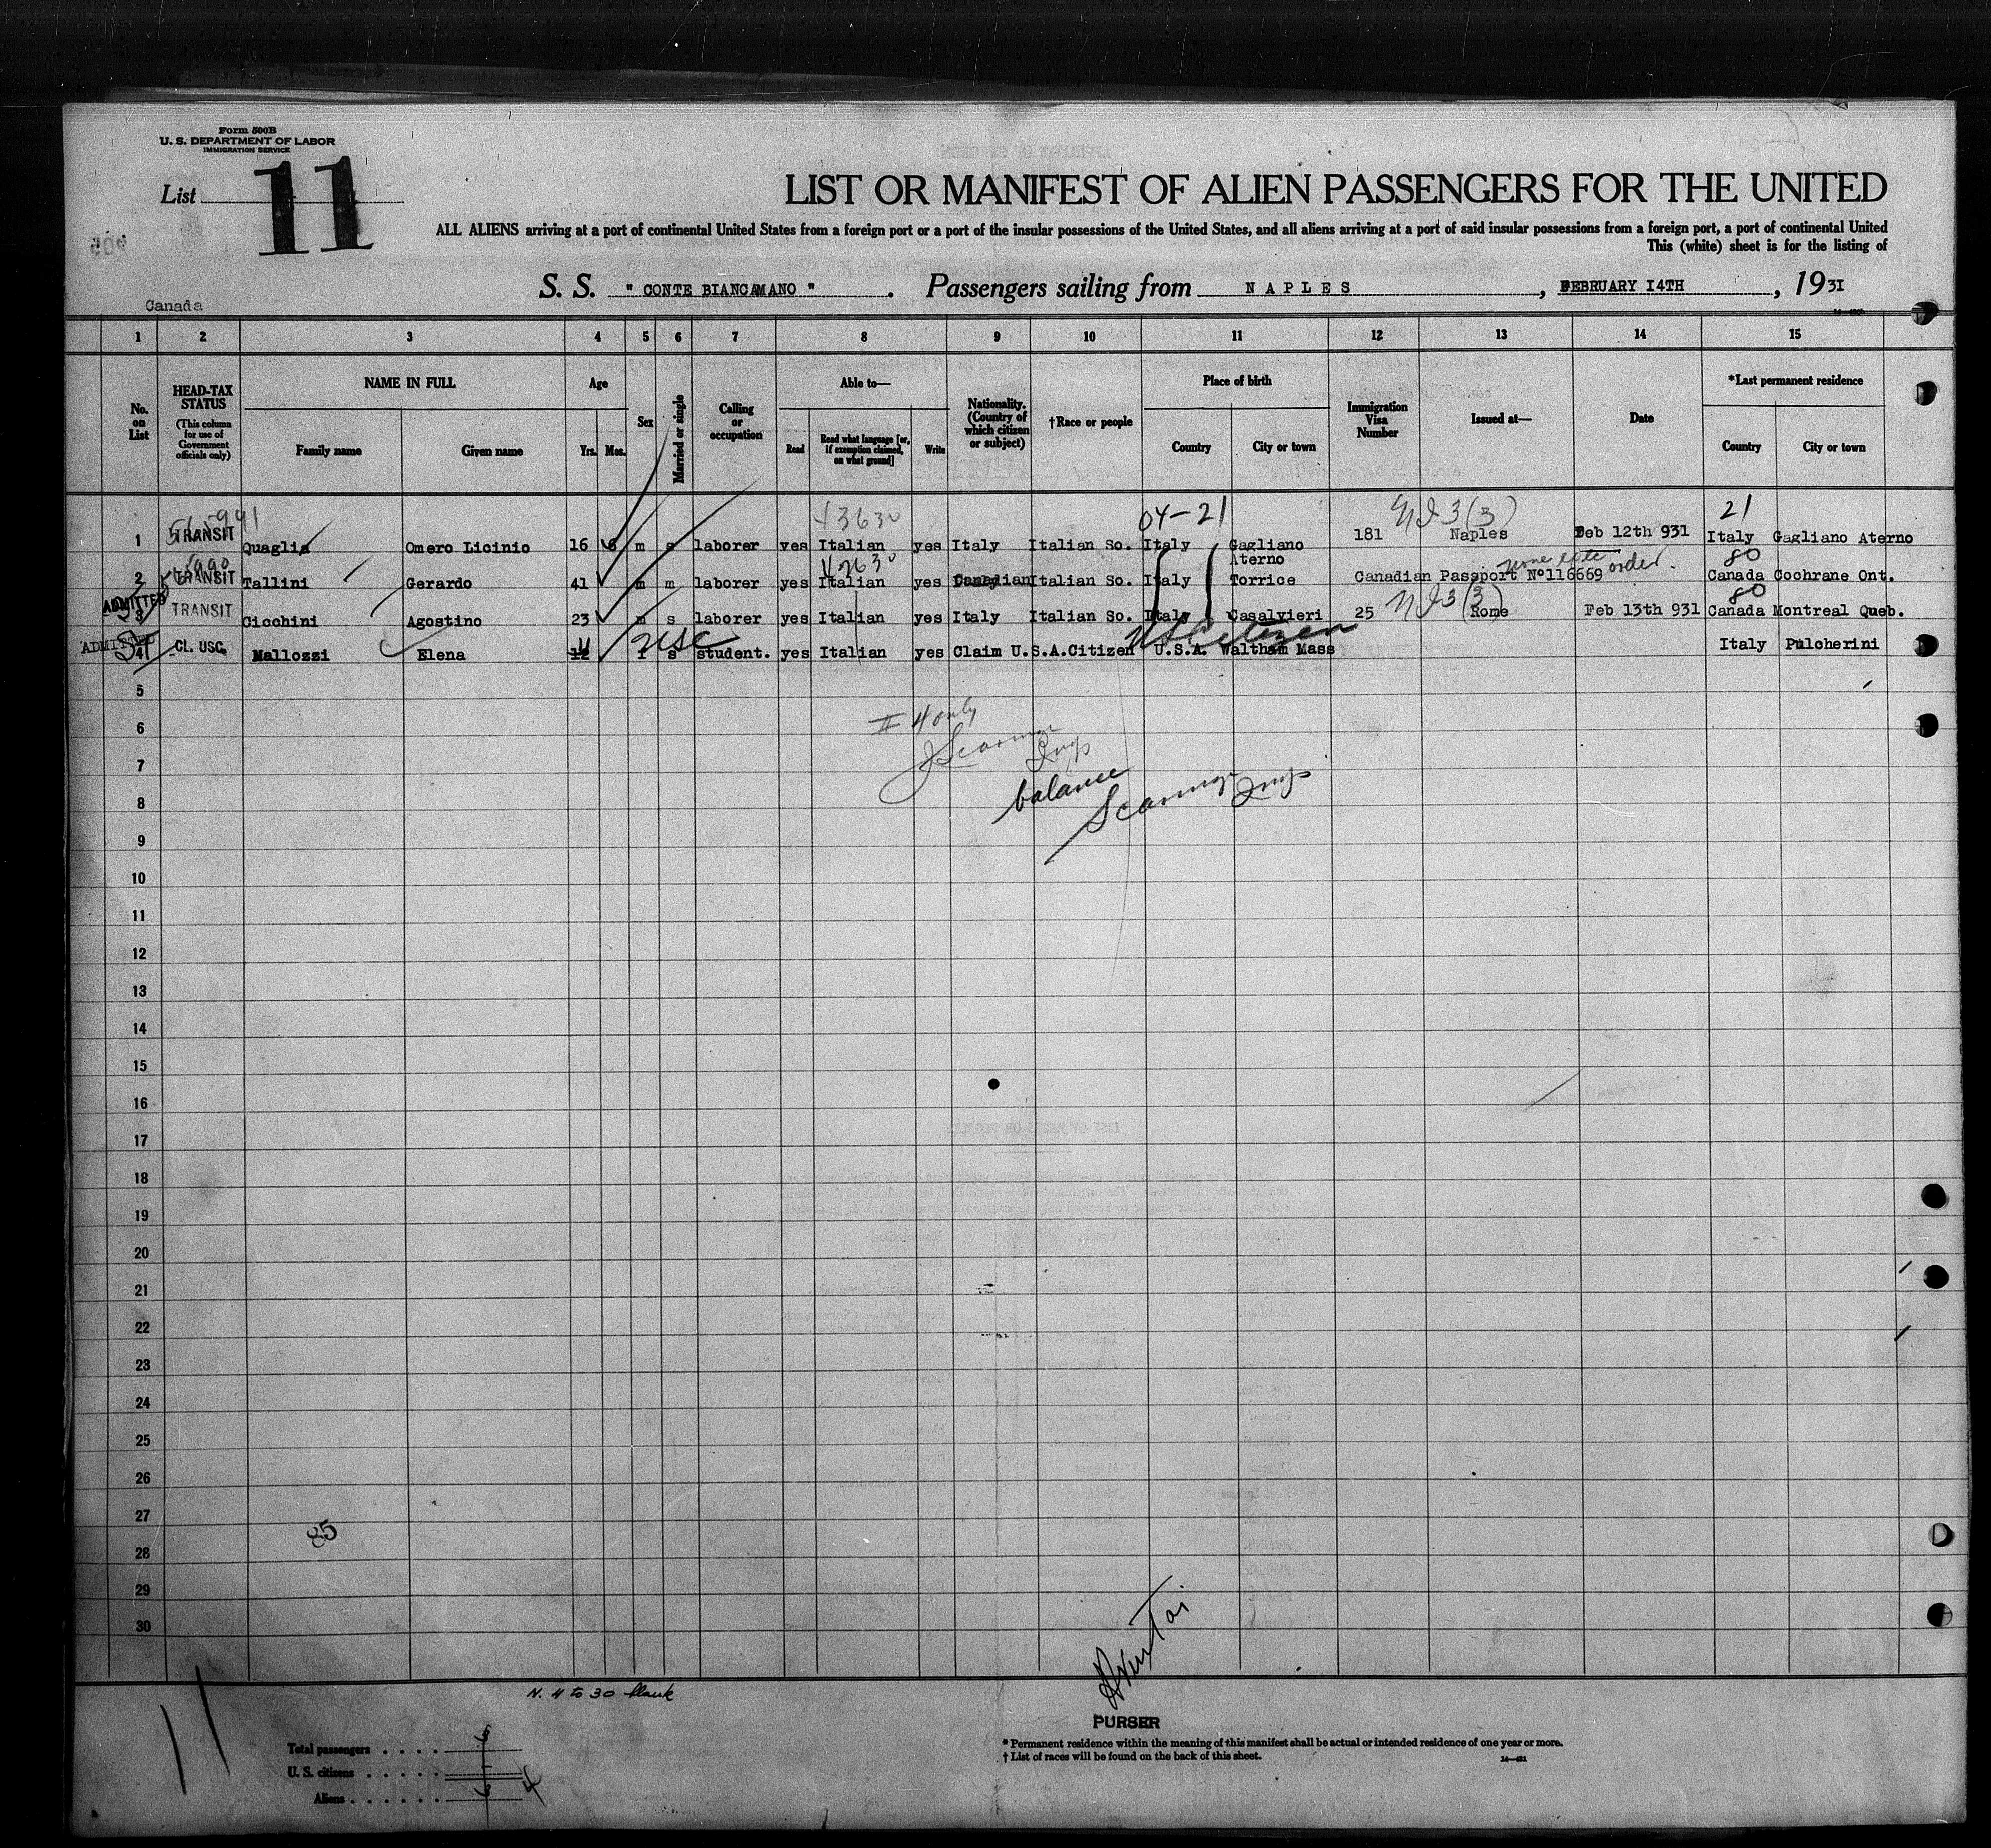 Form 500B
U. S. DEPARTMENT OF LABOR
IMMIGRATION SERVICE
List 11
LIST OR MANIFEST OF ALIEN PASSENGERS FOR THE UNITED
ALL ALIENS arriving at a port of continental United States from a foreign port or a port of the insular possessions of the United States, and all aliens arriving at a port of said insular possessions from a foreign port, a port of continental United
This (white) sheet is for the listing of
S. S. " CONTE BIANCAMANO " . Passengers sailing from NAPLES , FEBRUARY I4TH , 1931
Canada
1 2 3 4 5 6 7 8 9 10 11 12 13 14 15
No. on List
HEAD-TAX STATUS
(This column for use of Government officials only)
NAME IN FULL
Family name Given name
Age
Yrs. Mos.
Sex
Married or single
Calling or occupation
Able to—
Read Read what language [or, if exemption claimed, on what ground] Write
Nationality. (Country of which citizen or subject)
†Race or people
Place of birth
Country City or town
Immigration Visa Number
Issued at—
Date
*Last permanent residence
Country City or town
04-21 NI3(3) 21
1 TRANSIT Quaglia Omero Licinio 16 8 m s laborer yes Italian yes Italy Italian So. Italy Gagliano Aterno 181 Naples Feb 12th 931 Italy Gagliano Aterno
80
2 TRANSIT Tallini Gerardo 41 m m laborer yes Italian yes Canadian Italian So. Italy Torrice Canadian Passport Nº116669 order. Canada Cochrane Ont.
80
ADMITTED 3 TRANSIT Cicchini Agostino 23 m s laborer yes Italian yes Italy Italian So. Italy Casalvieri 25 NI3(3) Rome Feb 13th 931 Canada Montreal Queb.
USC US Citizen
ADMITTED 4 CL. USC. Mallozzi Elena 12 f s student. yes Italian yes Claim U.S.A.Citizen U.S.A. Waltham Mass Italy Pulcherini
5
6
# 4 only
7
8
balance
9
10
11
12
13
14
15
16
17
18
19
20
21
22
23
24
25
26
27
85
28
29
30
11
N. 4 to 30 blank
PURSER
Total passengers
U. S. citizens
Aliens
* Permanent residence within the meaning of this manifest shall be actual or intended residence of one year or more.
† List of races will be found on the back of this sheet.